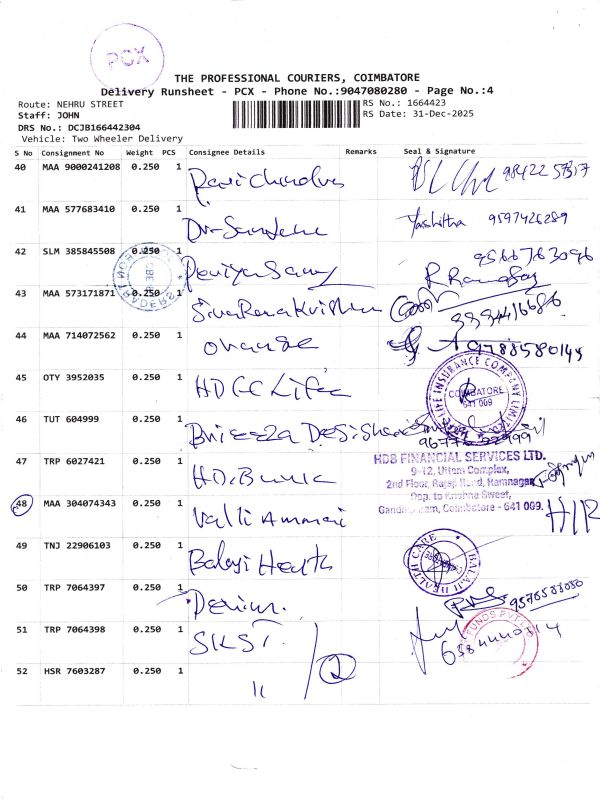 PCX
THE PROFESSIONAL COURIERS, COIMBATORE
Delivery Runsheet - PCX - Phone No.:9047080280 - Page No.:4
Route: NEHRU STREET RS No.: 1664423
Staff: JOHN RS Date: 31-Dec-2025
DRS No.: DCJB166442304
Vehicle: Two Wheeler Delivery
S No Consignment No Weight PCS Consignee Details Remarks Seal & Signature
40 MAA 9000241208 0.250 1
41 MAA 577683410 0.250 1 Yashitha 9597426289
42 SLM 385845508 0.250 1 Periyasamy 9566763096
43 MAA 573171871 0.250 1 Siva Rama Krishna
44 MAA 714072562 0.250 1 Orange 9788580145
45 OTY 3952035 0.250 1 HDFC Life
LIFE INSURANCE COMPANY LIMITED
COIMBATORE
641 009
46 TUT 604999 0.250 1
47 TRP 6027421 0.250 1 HDB
HDB FINANCIAL SERVICES LTD.
9-12, Uttam Complex,
2nd Floor, Rajaji Road, Ramnagar
Opp. to Krishna Sweet,
Gandhipuram, Coimbatore - 641 009.
48 MAA 304074343 0.250 1 Valli Ammai H/R
49 TNJ 22906103 0.250 1 Balaji Health
BALAJI HEALTH CARE
50 TRP 7064397 0.250 1
51 TRP 7064398 0.250 1 SKST 6384440814
FUNDS PVT LTD
52 HSR 7603287 0.250 1 " 2